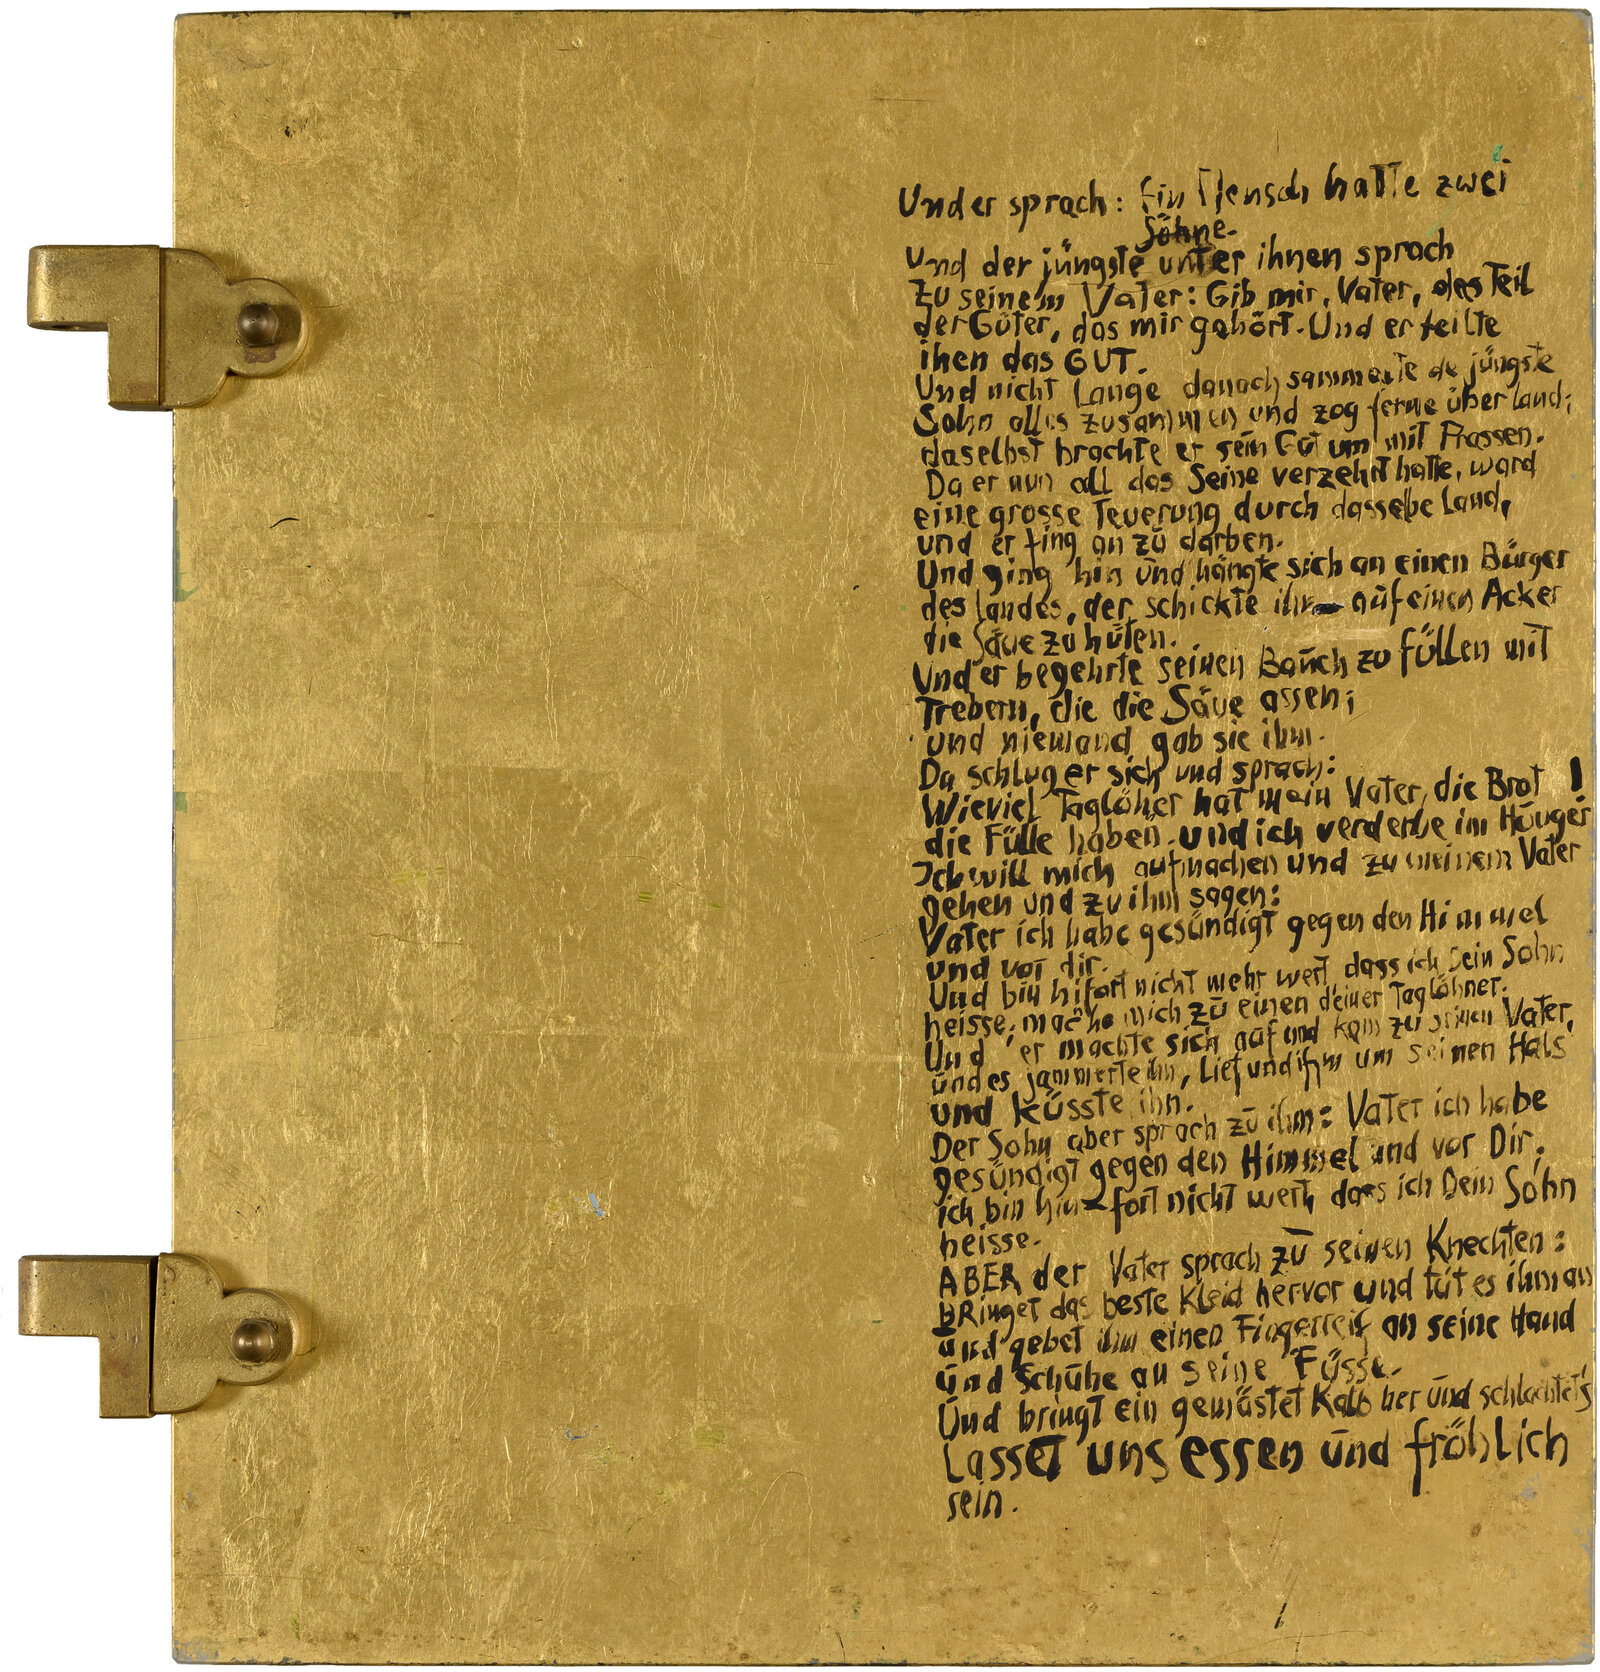 Und er sprach: Ein Mensch hatte zwei
Söhne.
Und der jüngste unter ihnen sprach
zu seinem Vater: Gib mir, Vater, das Teil
der Güter, das mir gehört. Und er teilte
ihen das GUT.
Und nicht Lange danach sammelte de jüngste
Sohn alles zusammen und zog ferne über land;
daselbst brachte er sein Gut um mit Prassen.
Da er nun all das Seine verzehrt hatte, ward
eine grosse Teuerung durch dasselbe Land,
und er fing an zu darben.
Und ging hin und hängte sich an einen Bürger
des landes, der schickte ihn auf einen Acker
die Säue zu hüten.
Und er begehrte seinen Bauch zu füllen mit
Trebern, die die Säue assen;
und niemand gab sie ihm.
Da schlug er sich und sprach:
Wieviel Taglöher hat mein Vater, die Brot !
die Fülle haben. und ich verderbe im Hunger
Ich will mich aufmachen und zu meinem Vater
gehen und zu ihm sagen:
Vater ich habe gesündigt gegen den Himmel
und vor dir.
Und bin hifort nicht mehr wert, dass ich Dein Sohn
heisse; mache mich zu einen deiner Taglöhner.
Und er machte sich auf und kam zu seinen Vater,
und es jammerte ihn, lief und ihm um seinen Hals
und küsste ihn.
Der Sohn aber sprach zu ihm: Vater ich habe
gesündigt gegen den Himmel und vor Dir;
ich bin hin-fort nicht wert, dass ich Dein Sohn
heisse.
ABER der Vater sprach zu seinen Knechten:
bRinget das beste Kleid hervor und tut es ihm an
und gebet ihm einen Fingerreif an seine Hand
und Schuhe an seine Füsse.
Und bringt ein gemästet Kalb her und schlachtet's
Lasset uns essen und fröhlich
sein.